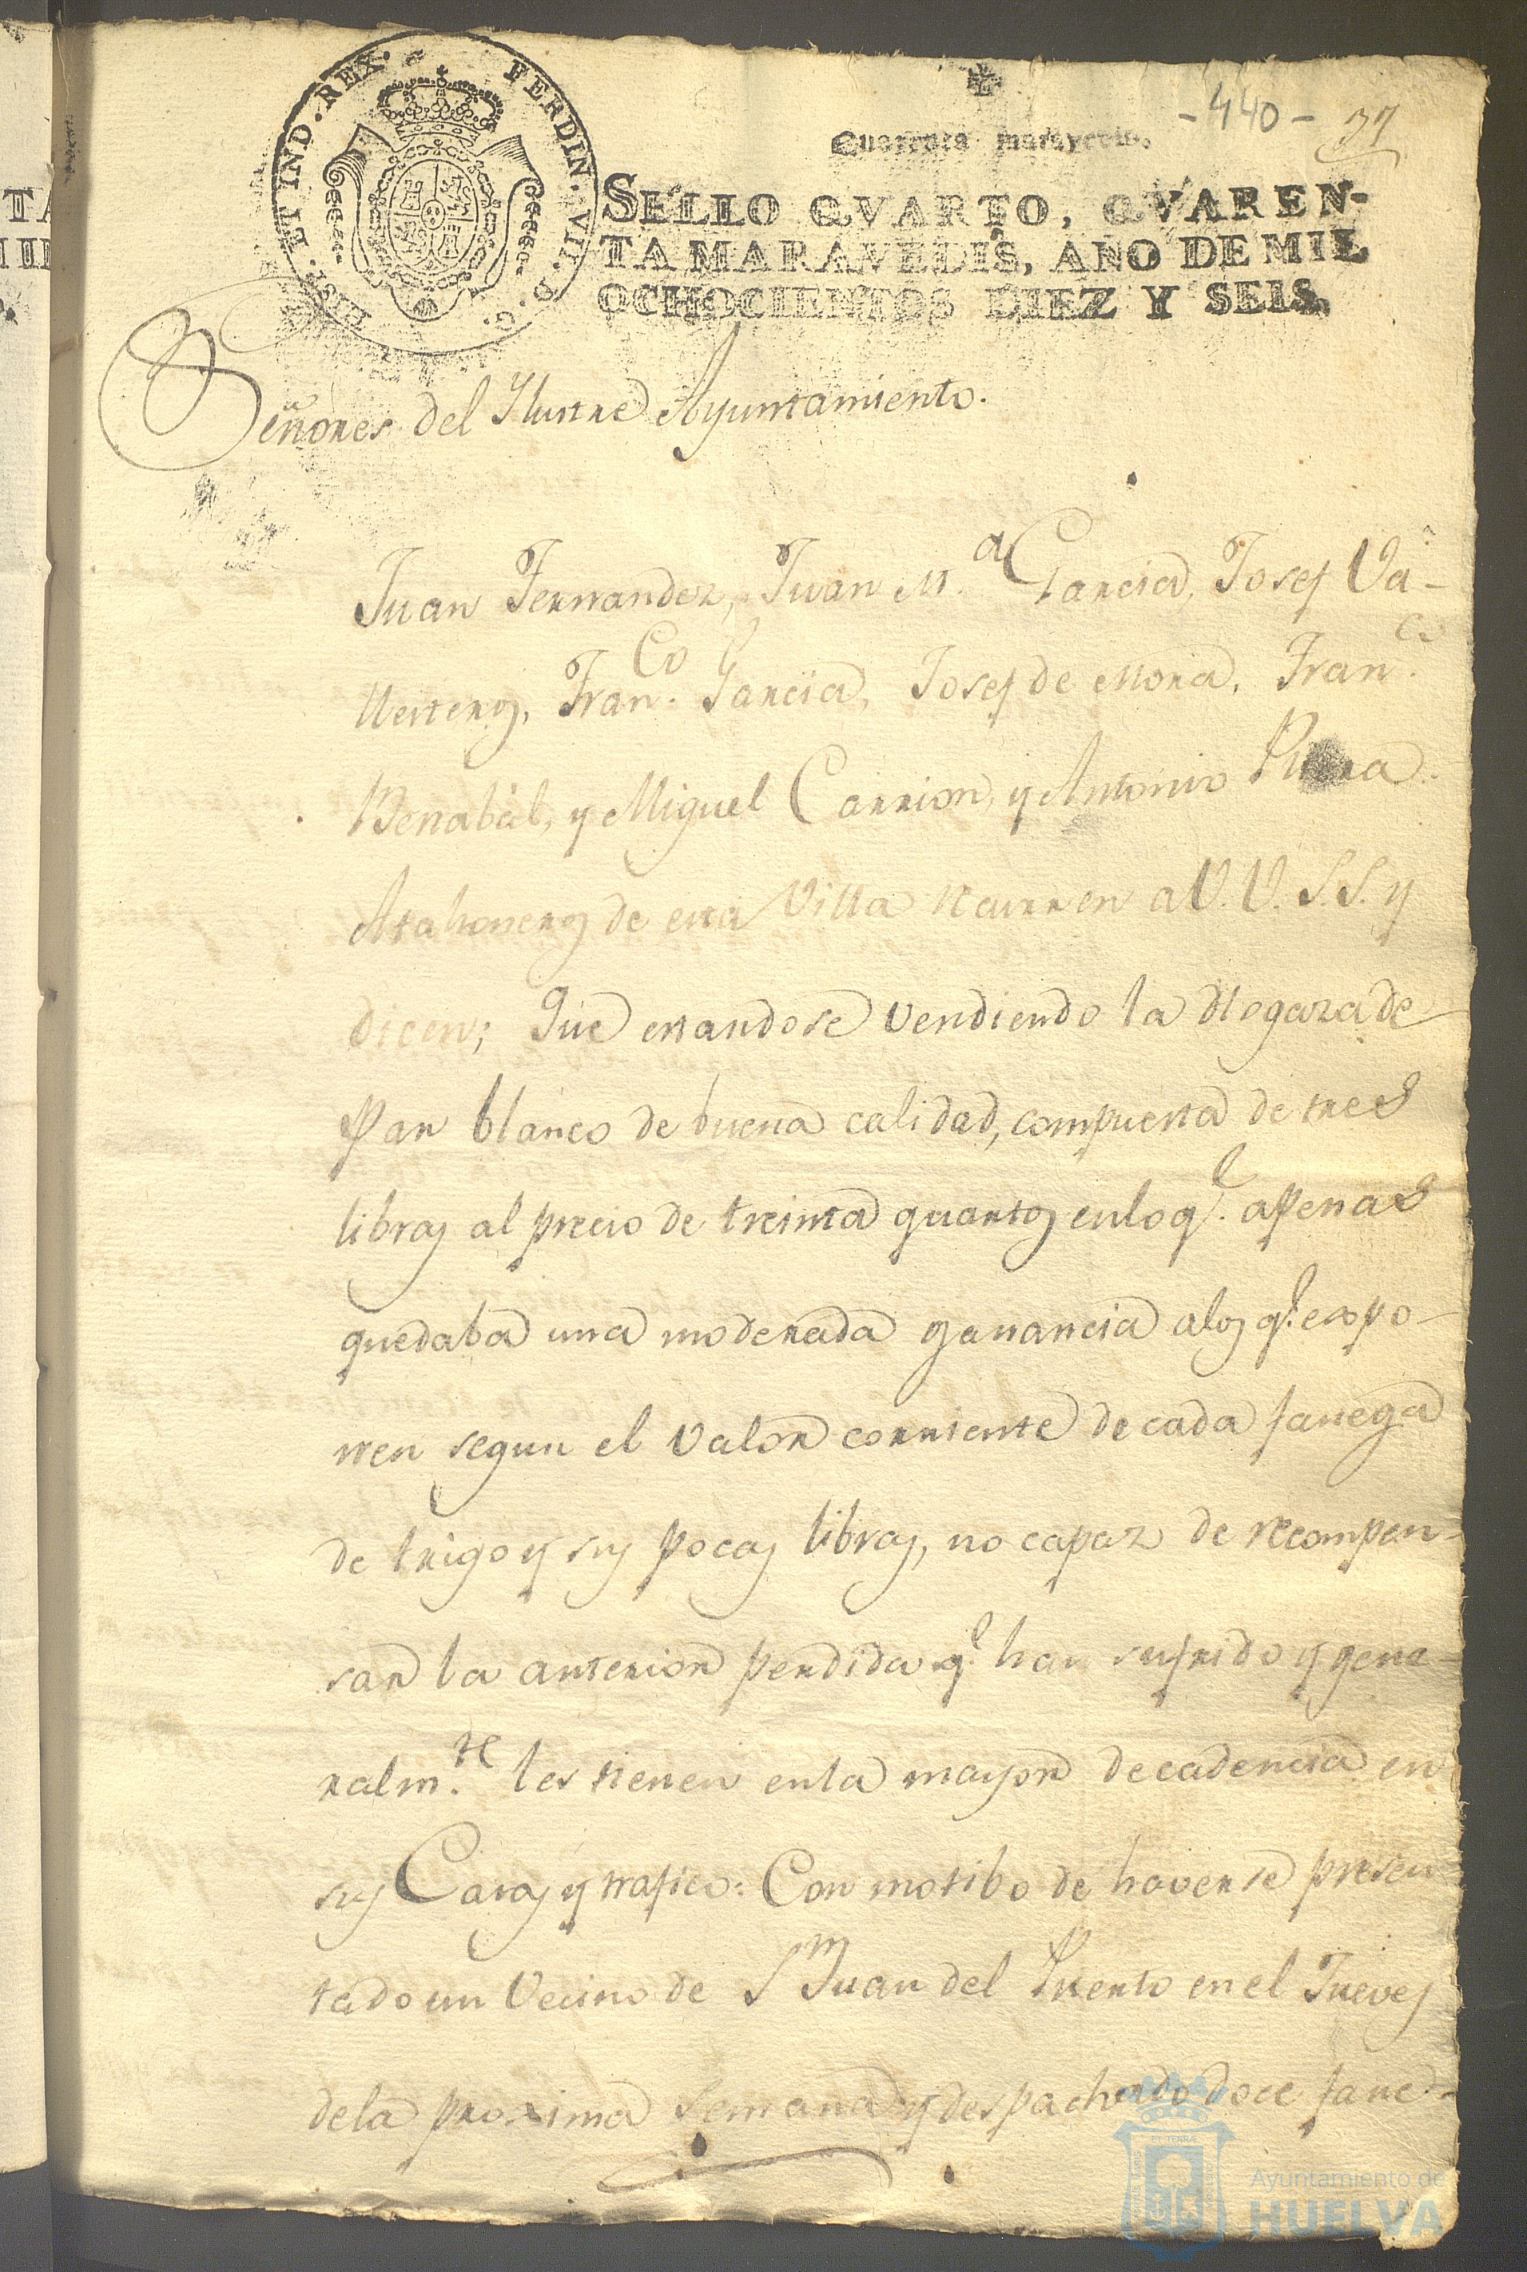 HISP. ET IND. REX. FERDIN. VII. D. G.
-440- 37
Quarenta maravedis.
SELLO QVARTO, QVAREN-
TA MARAVEDIS, AÑO DE MIL
OCHOCIENTOS DIEZ Y SEIS.
Señores del Ylustre Ayuntamiento.
Juan Fernandez, Juan M.a Garcia, Josef Va-
llesteros, Fran.co Garcia, Josef de Mora, Fran.co
Benabál, y Miguel Carrion, y Antonio
Atahoneros de esta Villa recurren a V. V. S.S. y
dicen; Que estandose vendiendo la Hogaza de
Pan blanco de buena calidad, compuesta de tres
libras al precio de treinta quartos en lo q.e apenas
quedaba una moderada ganancia a los q.e expo-
nen segun el valor corriente de cada fanega
de trigo y sus pocas libras, no capaz de recompen-
sar la anterior perdida q.e han sufrido y gene-
ralm.te les tienen en la mayor decadencia en
sus Casas y trafico: Con motibo de haverse presen
tado un Vecino de S.n Juan del Puerto en el Jueves
de la proxima Semana y despachando doce fane-
Ayuntamiento de
HUELVA